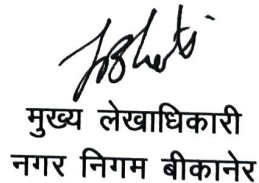 मुख्य लेखाधिकारी
नगर निगम बीकानेर